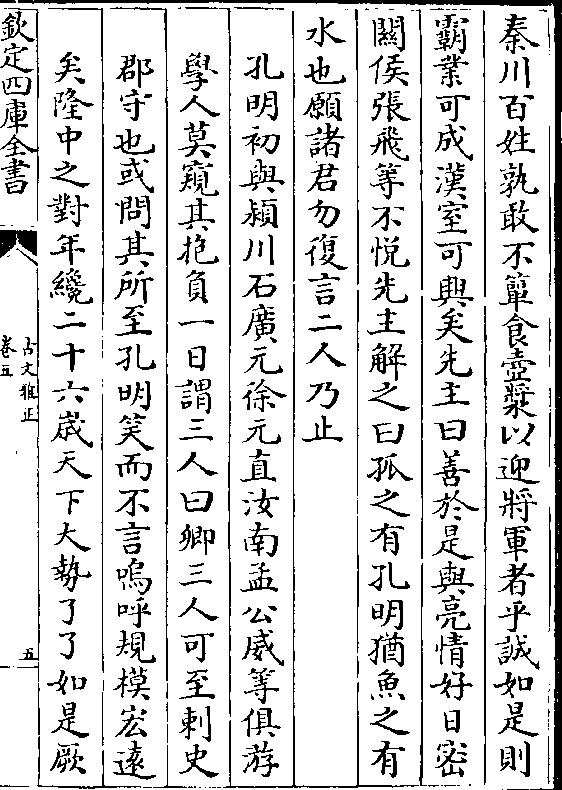 秦川百姓孰敢不簞食壺漿以迎將軍者乎誠如是則
霸業可成漢室可興矣先主曰善於是與亮情好日密
關侯張飛等不悦先主解之曰孤之有孔明猶魚之有
水也願諸君勿復言二人乃止
孔明初與潁川石廣元徐元直汝南孟公威等俱游
學人莫窺其抱負一日謂三人曰卿三人可至刺史
郡守也或問其所至孔明笑而不言嗚呼規模宏遠
矣隆中之對年纔二十六歲天下大勢了了如是厥
欽定四庫全書
古文雅正
卷五
五